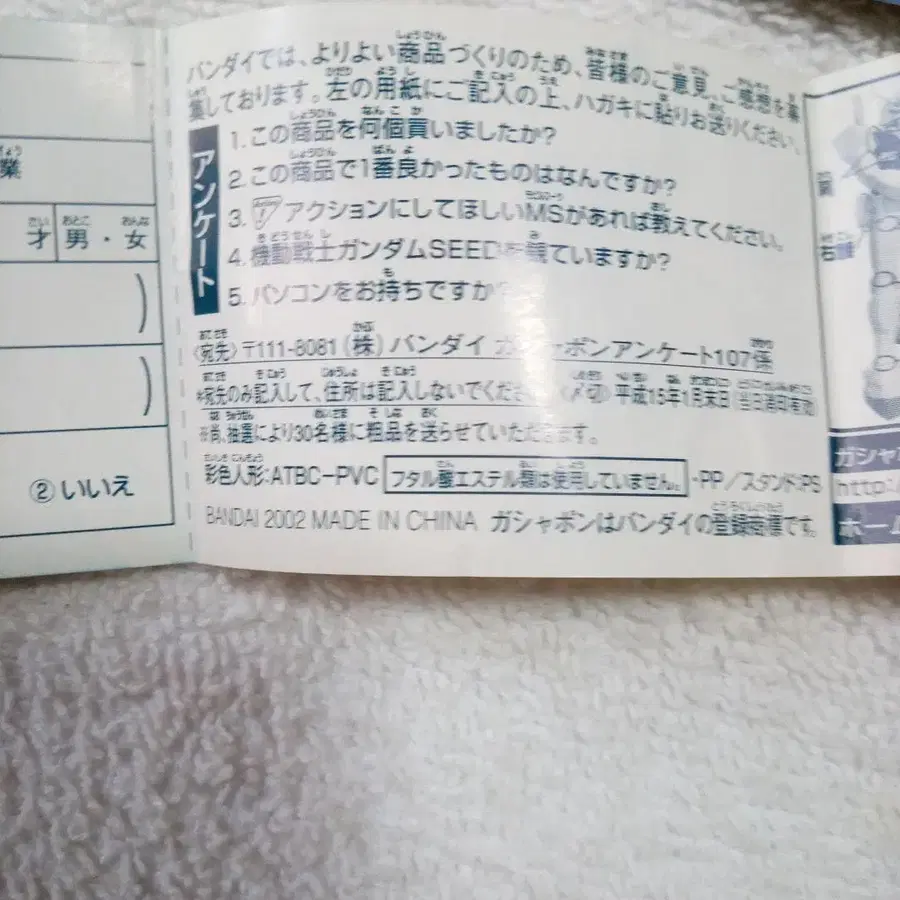 業
才 男・女
②いいえ
バンダイでは、よりよい商品づくりのため、皆様のご意見、ご感想を募
集しております。左の用紙にご記入の上、ハガキに貼りお送りください。
アンケート
1.この商品を何個買いましたか?
2.この商品で1番良かったものはなんですか?
3. アクションにしてほしいMSがあれば教えてください。
4.機動戦士ガンダムSEEDを観ていますか?
5.パソコンをお持ちですか?
〈宛先〉〒111-8081(株)バンダイ ガシャポンアンケート107係
*宛先のみ記入して、住所は記入しないでください。〈〆切〉平成15年1月末日(当日消印有効)
※尚、抽選により30名様に粗品を送らせていただきます。
彩色人形:ATBC-PVC フタル酸エステル類は使用していません。・PP/スタンド:PS
BANDAI 2002 MADE IN CHINA ガシャポンはバンダイの登録商標です。
ガシャポ
http:/
ホーム